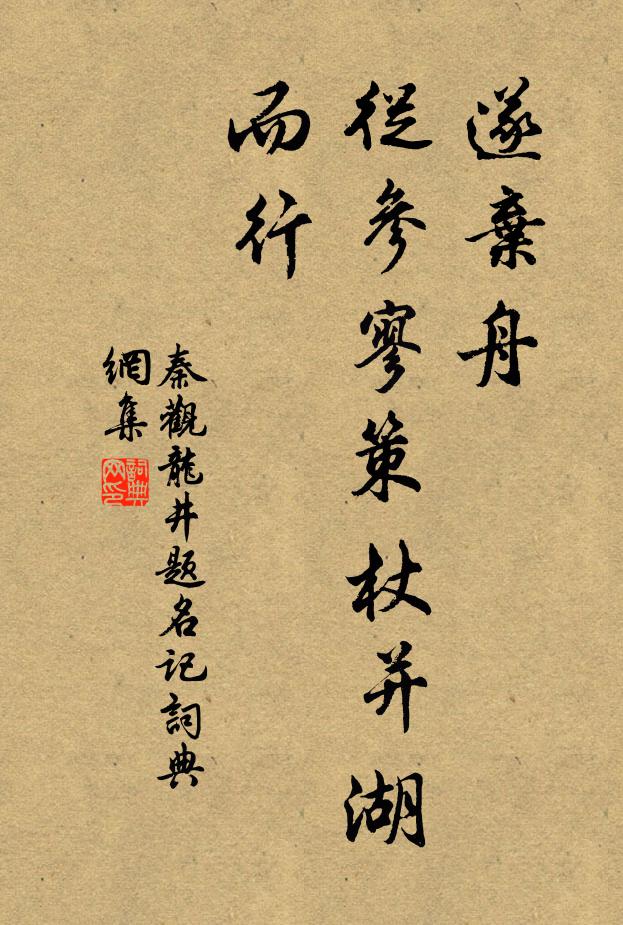 遂棄舟
從參寥策杖并湖
而行
秦觀龍井題名記詞典
網集
詞典
网印